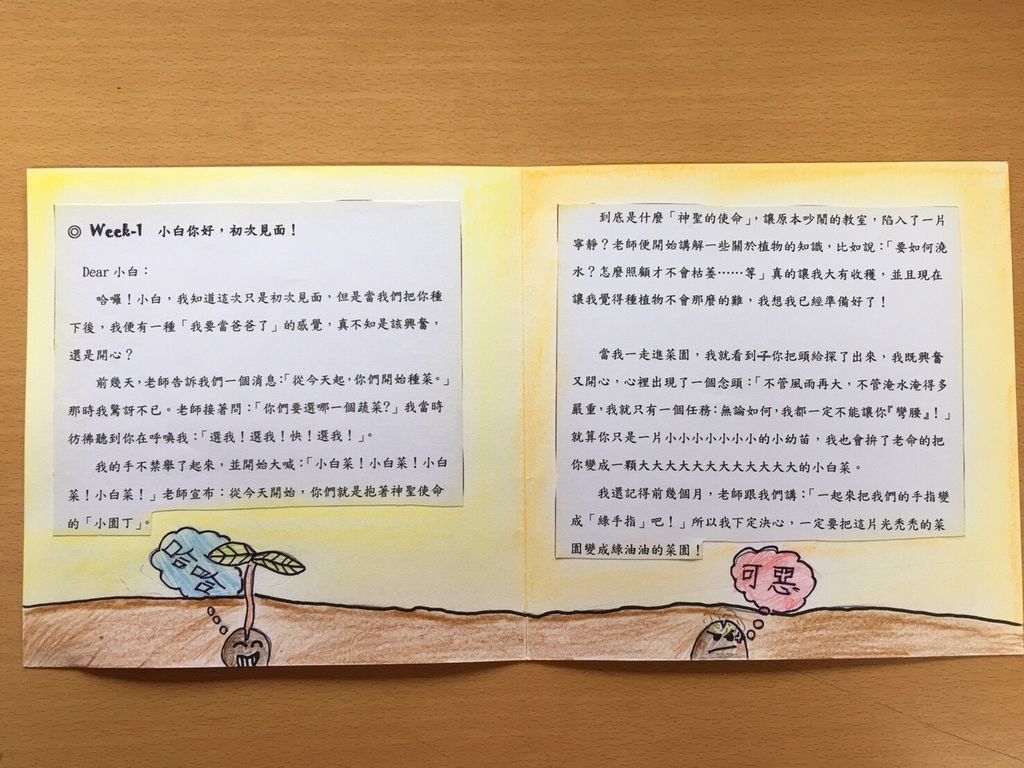 ◎ Week-1 小白你好，初次見面！
Dear 小白：
哈囉！小白，我知道這次只是初次見面，但是當我們把你種
下後，我便有一種「我要當爸爸了」的感覺，真不知是該興奮，
還是開心？
前幾天，老師告訴我們一個消息：「從今天起，你們開始種菜。」
那時我驚訝不已。老師接著問：「你們要選哪一個蔬菜?」我當時
彷彿聽到你在呼喚我：「選我！選我！快！選我！」。
我的手不禁舉了起來，並開始大喊：「小白菜！小白菜！小白
菜！小白菜！」老師宣布：從今天開始，你們就是抱著神聖使命
的「小園丁」。
哈哈
到底是什麼「神聖的使命」，讓原本吵鬧的教室，陷入了一片
寧靜？老師便開始講解一些關於植物的知識，比如說：「要如何澆
水？怎麼照顧才不會枯萎……等」真的讓我大有收穫，並且現在
讓我覺得種植物不會那麼的難，我想我已經準備好了！
當我一走進菜園，我就看到子你把頭給探了出來，我既興奮
又開心，心裡出現了一個念頭：「不管風雨再大，不管淹水淹得多
嚴重，我就只有一個任務：無論如何，我都一定不能讓你『彎腰』！」
就算你只是一片小小小小小小小的小幼苗，我也會拚了老命的把
你變成一顆大大大大大大大大大大大大的小白菜。
我還記得前幾個月，老師跟我們講：「一起來把我們的手指變
成「綠手指」吧！」所以我下定決心，一定要把這片光禿禿的菜
園變成綠油油的菜園！
可惡